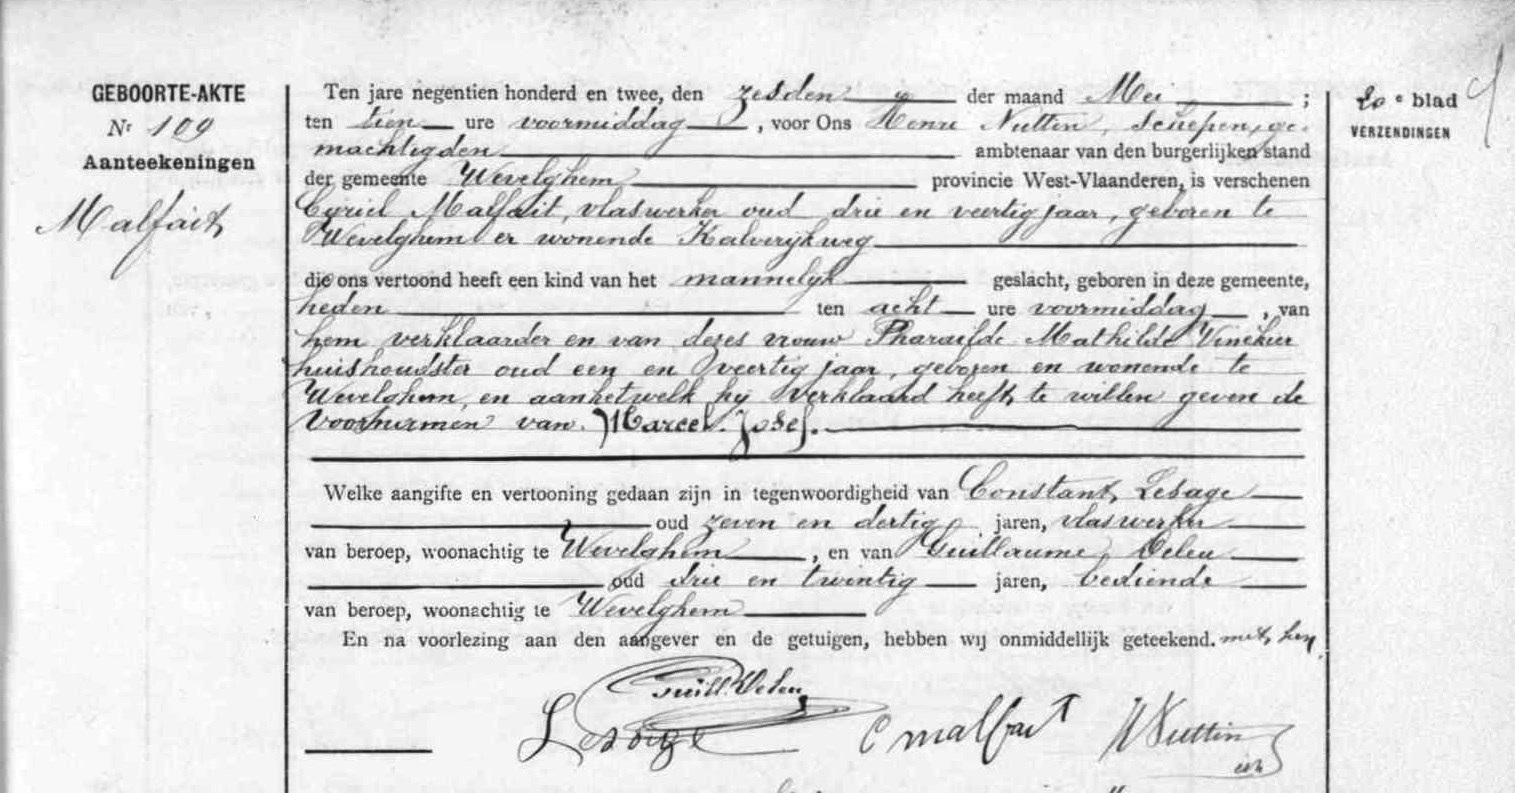 GEBOORTE-AKTE
Nr 109
Aanteekeningen
Malfait
Ten jare negentien honderd en twee, den zesden der maand Mei ;
ten tien ure voormiddag , voor Ons Henri Nuttin, Schepen, ge-
machtigden ambtenaar van den burgerlijken stand
der gemeente Wevelghem provincie West-Vlaanderen, is verschenen
Cyriel Malfait, vlaswerker oud drie en veertig jaar, geboren te
Wevelghem er wonende Kalverijkweg
die ons vertoond heeft een kind van het mannelyk geslacht, geboren in deze gemeente,
heden ten acht ure voormiddag , van
hem verklaarder en van dezes vrouw Pharaïlde Mathilde Vinckier
huishoudster oud een en veertig jaar, geboren en wonende te
Wevelghem, en aan hetwelk hy verklaard heeft te willen geven de
voornamen van Marcel Josef.
Welke aangifte en vertooning gedaan zijn in tegenwoordigheid van Constant Lesage
oud zeven en dertig jaren, vlaswerker
van beroep, woonachtig te Wevelghem , en van Guillaume Deleu
oud drie en twintig jaren, bediende
van beroep, woonachtig te Wevelghem
En na voorlezing aan den aangever en de getuigen, hebben wij onmiddellijk geteekend. met hen
Guill. Deleu
Lesage C Malfait H Nuttin
20e blad
VERZENDINGEN